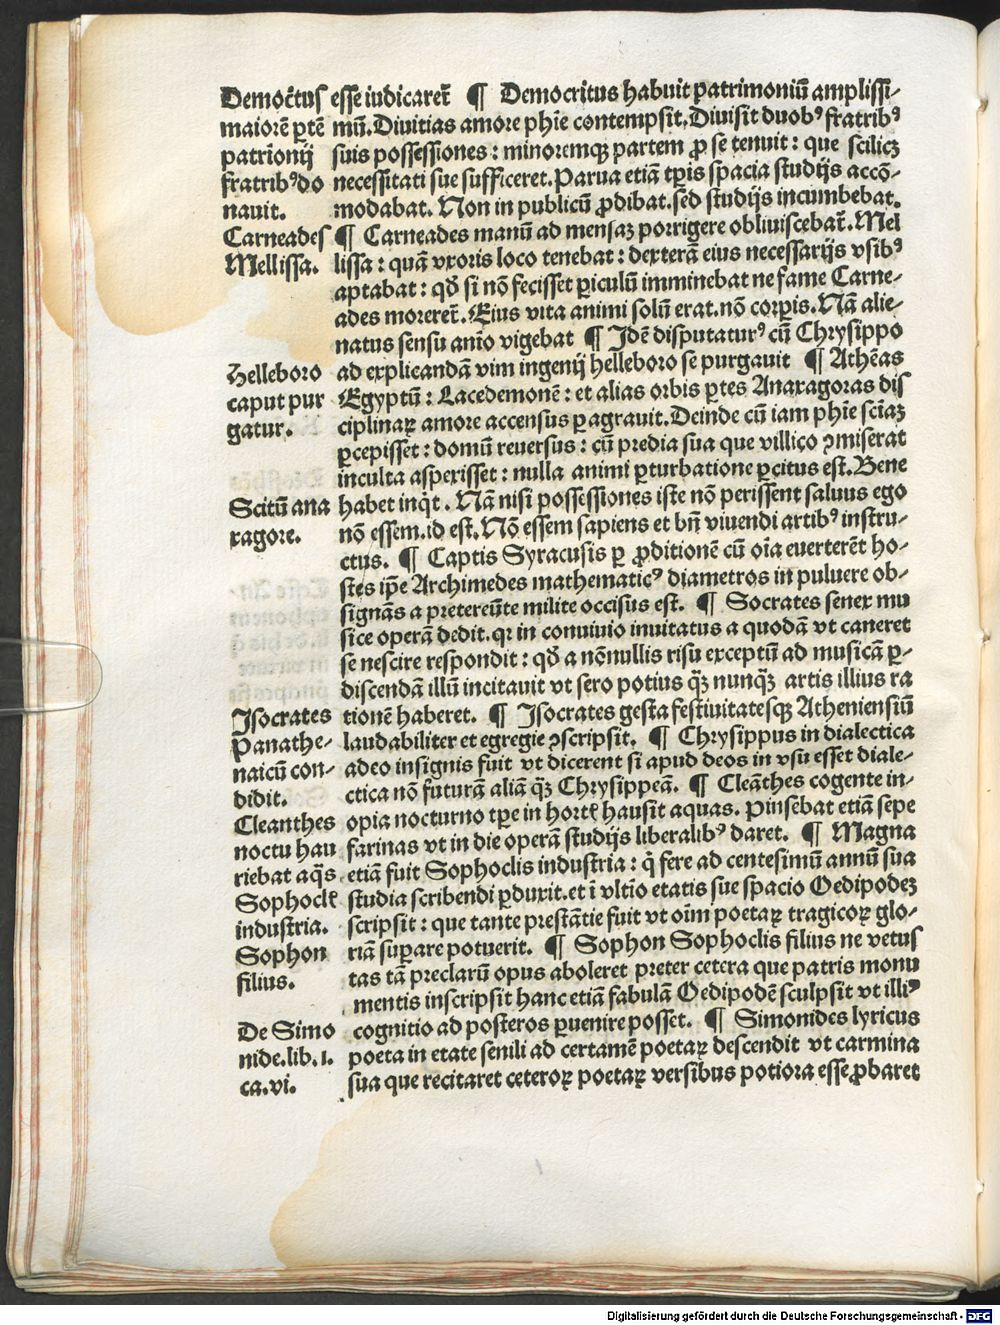 Democ̃tus
maiorē ꝑtē
patrionij
fratribꝰ do
nauit.
Carneades
Mellissa.
Helleboro
caput pur
gatur.
Scitū ana
xagore.
Isocrates
Panathe-
naicū con-
didit.
Cleanthes
noctu hau
riebat aq̄s
Sophocl̃
industria.
Sophon
filius.
De Simo
nide.lib.1.
ca.vi.
esse iudicaret̃ ¶ Democritus habuit patrimoniū amplissi-
mū.Diuitias amore phīe contempsit.Diuisit duobꝰ fratribꝰ
suis possessiones: minoremqꝫ partem ꝓ se tenuit: que scilicꝫ
necessitati sue sufficeret.Parua etiā tꝑis spacia studijs accō-
modabat. Non in publicū ꝓdibat.sed studijs incumbebat.
¶ Carneades manū ad mensaꝫ porrigere obliuiscebat̃.Mel
lissa: quā vxoris loco tenebat: dexterā eius necessarijs vsibꝰ
aptabat: qđ si nō fecisset ꝑiculū imminebat ne fame Carne-
ades moreret̃.Eius vita animi solū erat.nō corꝑis.Nā alie-
natus sensu anīo vigebat ¶ Idē disputaturꝰ cū Chrysippo
ad explicandā vim ingenij helleboro se purgauit ¶ Athēas
Egyptū: Lacedemonē: et alias orbis ꝑtes Anaxagoras dis
ciplinaꝝ amore accensus ꝑagrauit.Deinde cū iam phīe sciāꝫ
ꝑcepisset: domū reuersus: cū predia sua que villico ꝯmiserat
inculta asperisset: nulla animi ꝑturbatione ꝑcitus est.Bene
habet inq̇t. Nā nisi possessiones iste nō perissent saluus ego
nō essem.id est.Nō essem sapiens et bn̄ viuendi artibꝰ instru-
ctus. ¶ Captis Syracusis ꝑ ꝓditionē cū oīa euerterēt ho-
stes ip̄e Archimedes mathematicꝰ diametros in puluere ob-
signās a pretereūte milite occisus est. ¶ Socrates senex mu
sice operā dedit.qꝛ in conuiuio inuitatus a quodā vt caneret
se nescire respondit: qđ a nōnullis risu exceptū ad musicā ꝑ-
discendā illū incitauit vt sero potius q̄ꝫ nunq̄ꝫ artis illius ra
tionē haberet. ¶ Isocrates gesta festiuitatesqꝫ Atheniensiū
laudabiliter et egregie ꝯscripsit. ¶ Chrysippus in dialectica
adeo insignis fuit vt dicerent si apud deos in vsu esset diale-
ctica nō futurā aliā q̄ꝫ Chrysippeā. ¶ Cleāthes cogente in-
opia nocturno tꝑe in hort̃ hausit aquas. Pinsebat etiā sepe
farinas vt in die operā studijs liberalibꝰ daret. ¶ Magna
etiā fuit Sophoclis industria: q̇ fere ad centesimū annū sua
studia scribendi ꝑduxit.et ī vltīo etatis sue spacio Oedipodeꝫ
scripsit: que tante prestātie fuit vt oīm poetaꝝ tragicoꝝ glo-
riā suꝑare potuerit. ¶ Sophon Sophoclis filius ne vetus
tas tā preclarū opus aboleret preter cetera que patris monu
mentis inscripsit hanc etiā fabulā Oedipodē sculpsit vt illiꝰ
cognitio ad posteros ꝑuenire posset. ¶ Simonides lyricus
poeta in etate senili ad certamē poetaꝝ descendit vt carmina
sua que recitaret ceteroꝝ poetaꝝ versibus potiora esse ꝓbaret
Digitalisierung gefördert durch die Deutsche Forschungsgemeinschaft - DFG